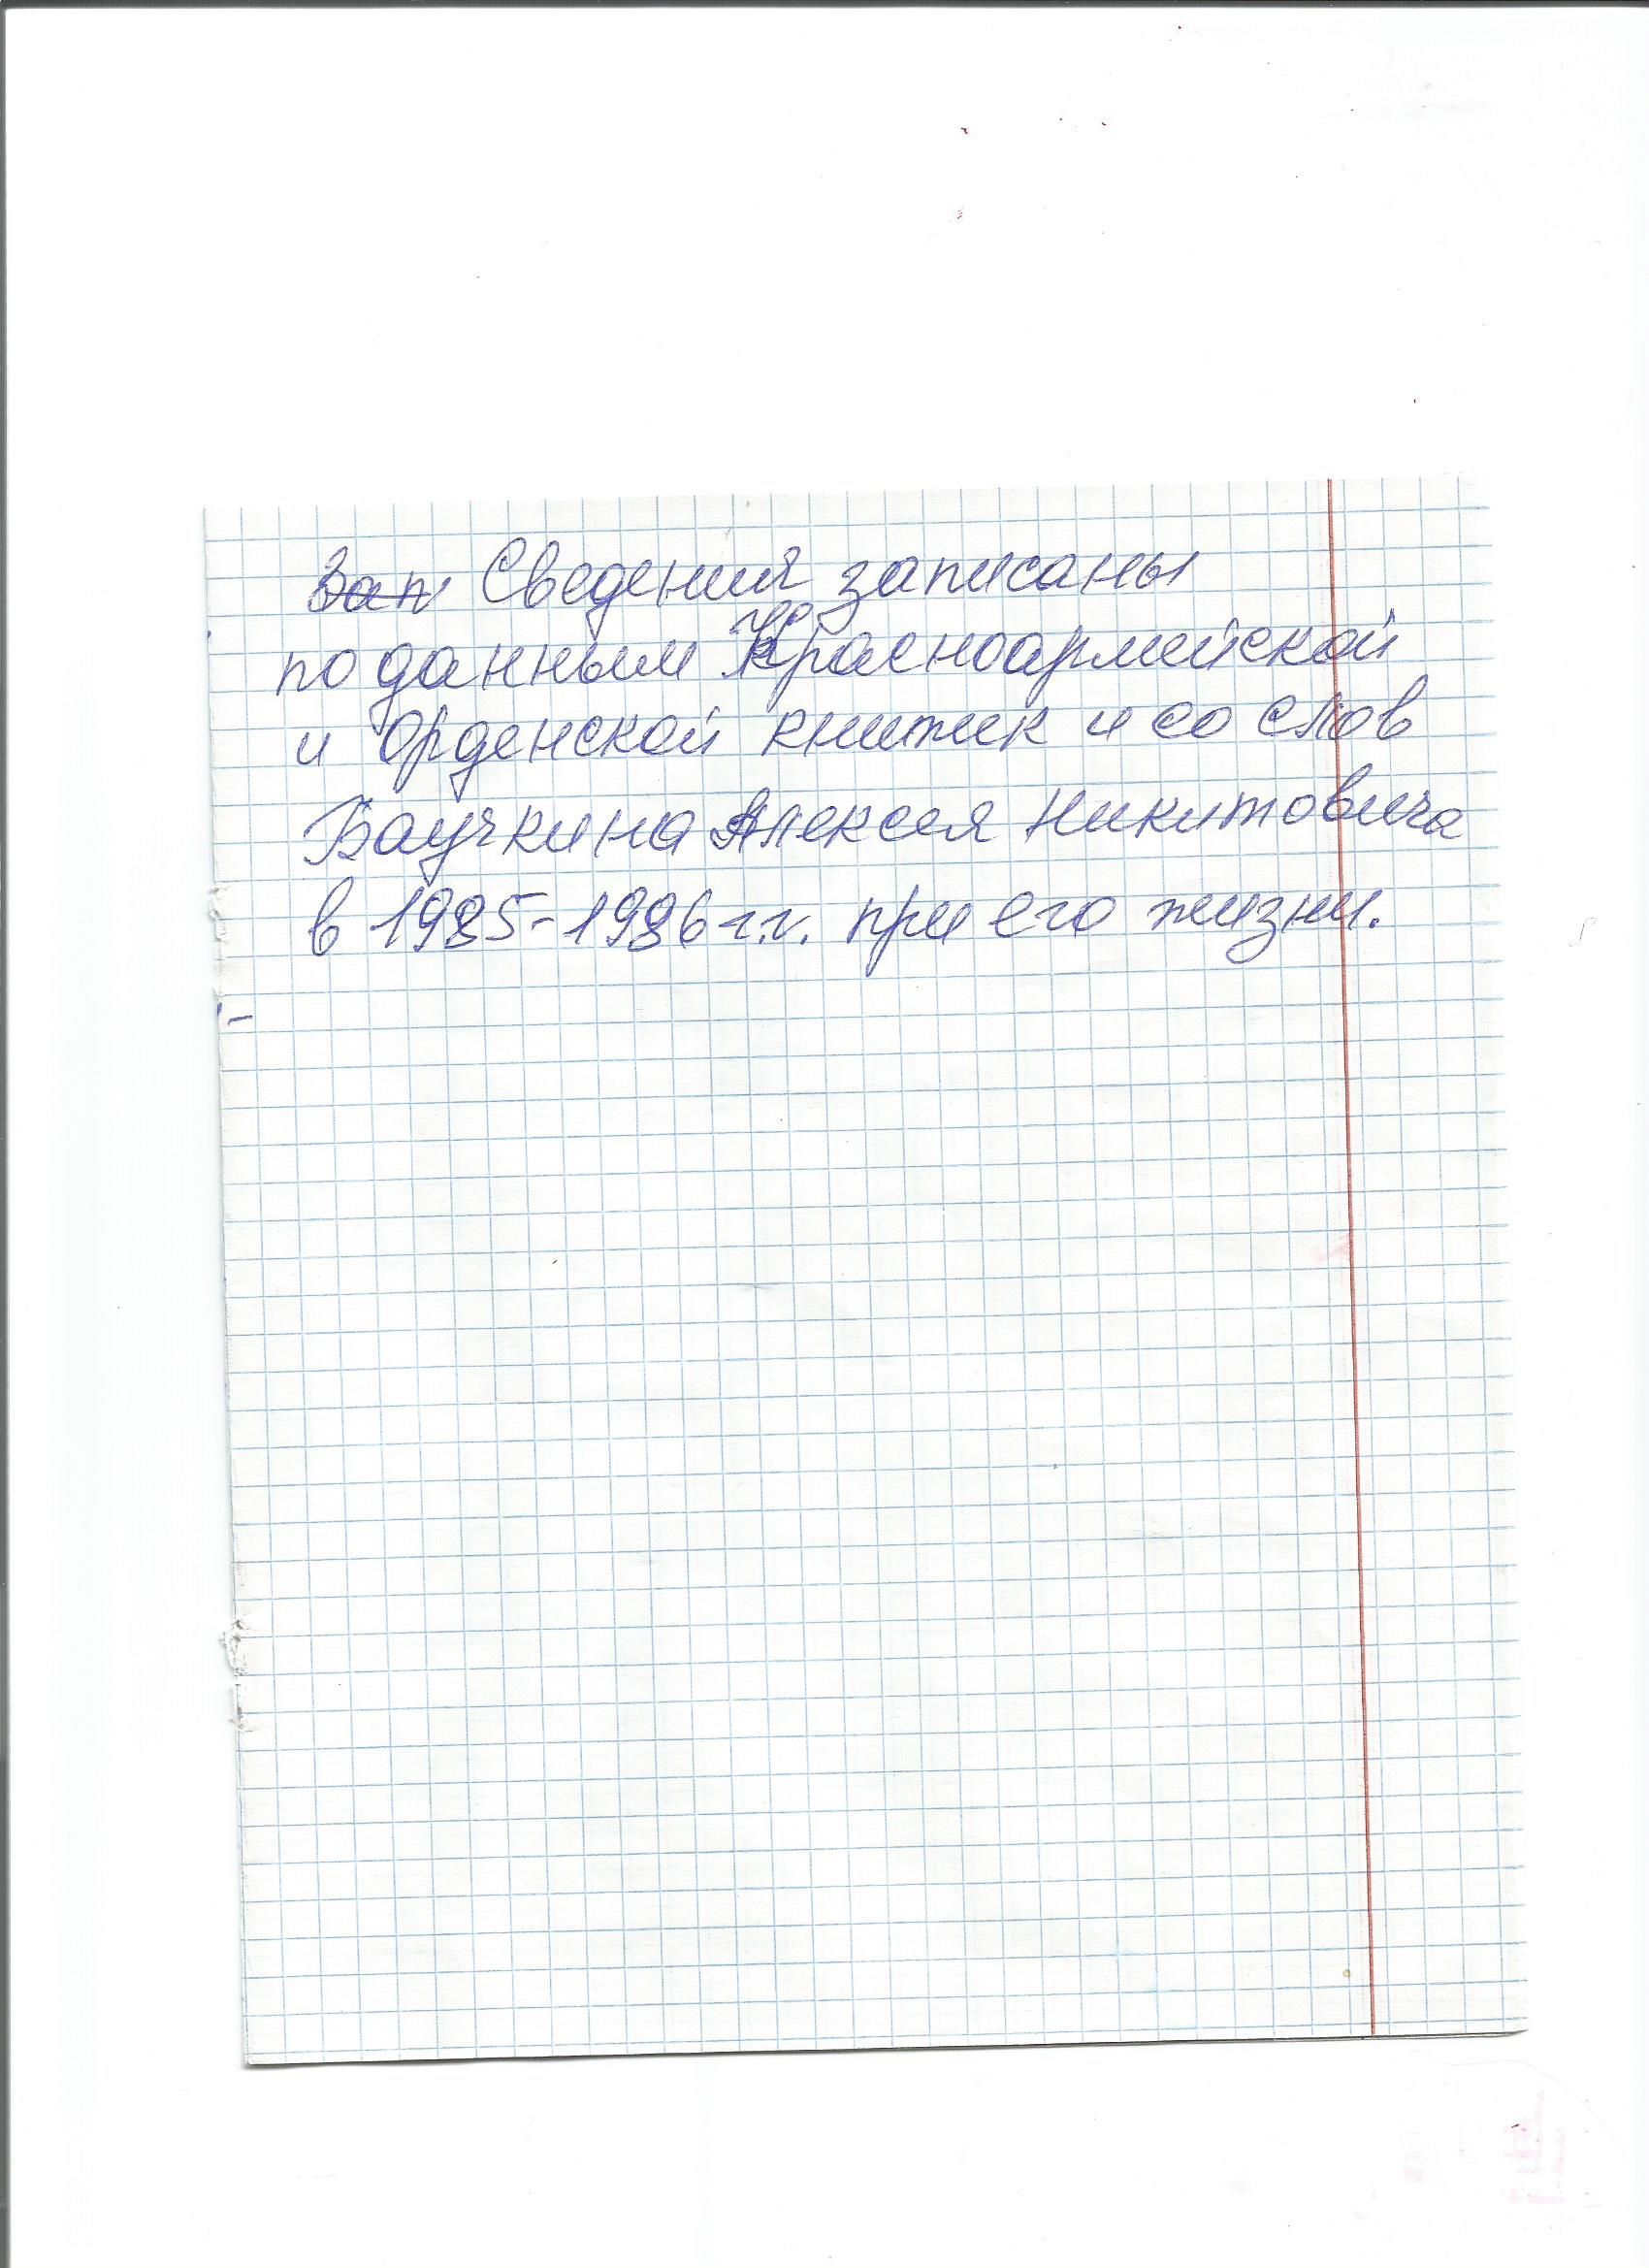 Зап Сведения записаны
по данным Красноармейской
и Орденской книжек и со слов
Баучкина Алексея Никитовича
в 1985-1986 г.г. при его жизни.